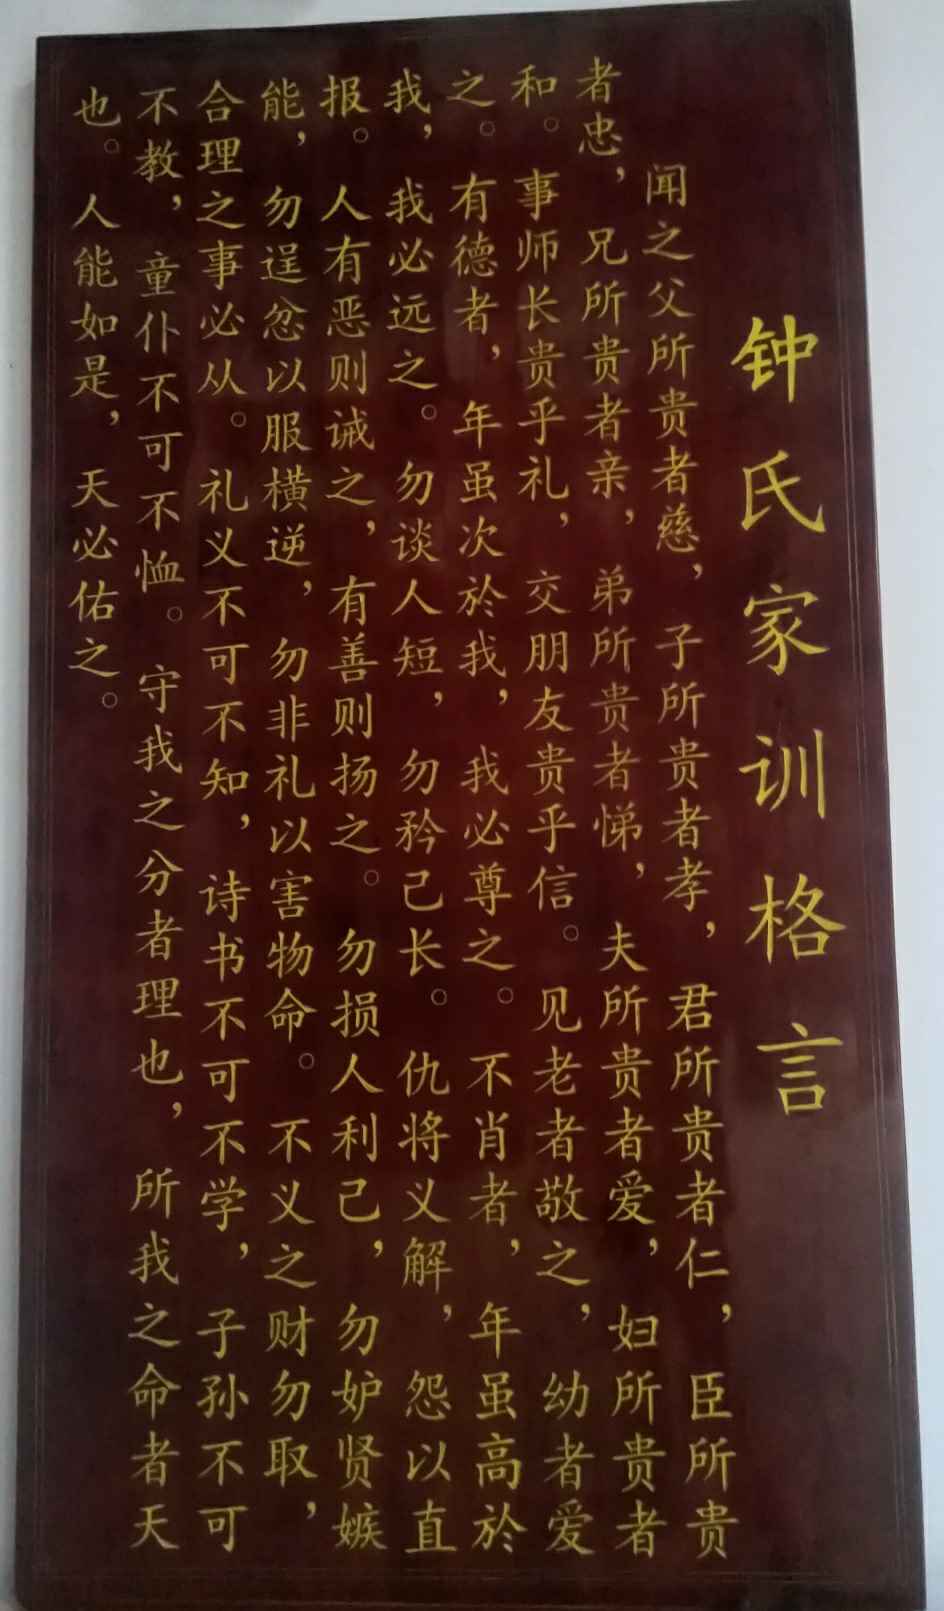 钟氏家训格言
闻之父所贵者慈，子所贵者孝，君所贵者仁，臣所贵
者忠，兄所贵者亲，弟所贵者悌，夫所贵者爱，妇所贵者
和。事师长贵乎礼，交朋友贵乎信。见老者敬之，幼者爱
之。有德者，年虽次於我，我必尊之。不肖者，年虽高於
我，我必远之。勿谈人短，勿矜己长。仇将义解，怨以直
报。人有恶则诫之，有善则扬之。勿损人利己，勿妒贤嫉
能，勿逞忿以服横逆，勿非礼以害物命。不义之财勿取，
合理之事必从。礼义不可不知，诗书不可不学，子孙不可
不教，童仆不可不恤。守我之分者理也，所我之命者天
也。人能如是，天必佑之。